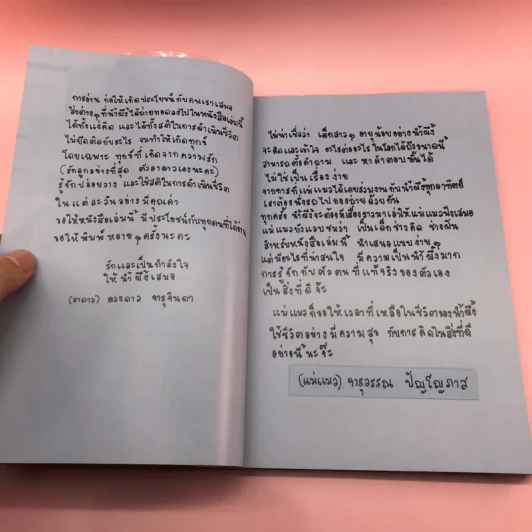 การอ่าน ก่อให้เกิดประโยชน์กับคนเราเสมอ
สิ่งต่างๆที่น้ำผึ้งได้ถ่ายทอดลงไปในหนังสือเล่มนี้
ได้ทั้งแง่คิด และได้ทั้งสติในการดำเนินชีวิต
ไม่ยึดติดกับอะไร จนทำให้เกิดทุกข์
โดยเฉพาะ ทุกข์ที่เกิดจากความรัก
(รักลูกอย่างที่สุด ตัวอาดาวเองนะคะ)
รู้จักปล่อยวาง และใช้สติในการดำเนินชีวิต
ในแต่ละวันอย่างมีคุณค่า
ขอให้หนังสือเล่มนี้ มีประโยชน์กับทุกคนที่ได้อ่าน
ขอให้พิมพ์หลายๆครั้งนะคะ
รักและเป็นกำลังใจ
ให้น้ำผึ้งเสมอ
(อาดาว) ดวงดาว จารุจินดา
ไม่น่าเชื่อว่า เด็กสาวๆ อายุน้อยอย่างน้ำผึ้ง
จะคิดและเข้าใจ อะไรต่ออะไร ในโลกได้ถึงขนาดนี้
สามารถตั้งคำถาม และ หาคำตอบนั้นได้
ไม่ใช่เป็นเรื่องง่าย
จากการที่แม่แมวได้เคยร่วมงานกับน้ำผึ้งทุกอาทิตย์
เราต้องนั่งรถไปกองถ่ายด้วยกัน
ทุกครั้ง น้ำผึ้งจะต้องมีเรื่องราวมาเล่าให้แม่แมวฟังเสมอ
แม่แมวยังแอบชมว่า เป็นเด็กช่างคิด ช่างฝัน
สำหรับหนังสือเล่มนี้ นำเสนอแบบง่ายๆ
แต่มีอะไรที่น่าสนใจ มีความเป็นน้ำผึ้งมาก
การรู้จักกับตัวตนที่แท้จริงของตัวเอง
เป็นสิ่งที่ดีจ้ะ
แม่แมวก็ขอให้เวลาที่เหลือในชีวิตของน้ำผึ้ง
ใช้ชีวิตอย่างมีความสุข กับการคิดในสิ่งที่ดี
อย่างนี้นะจ๊ะ
(แม่แมว) จารุวรรณ ปัญโญภาส